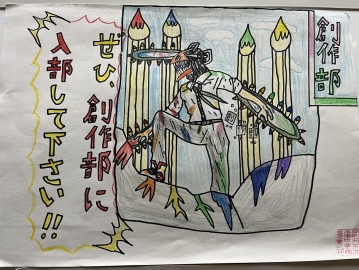 創作部
ぜひ、創作部に
入部して下さい!!